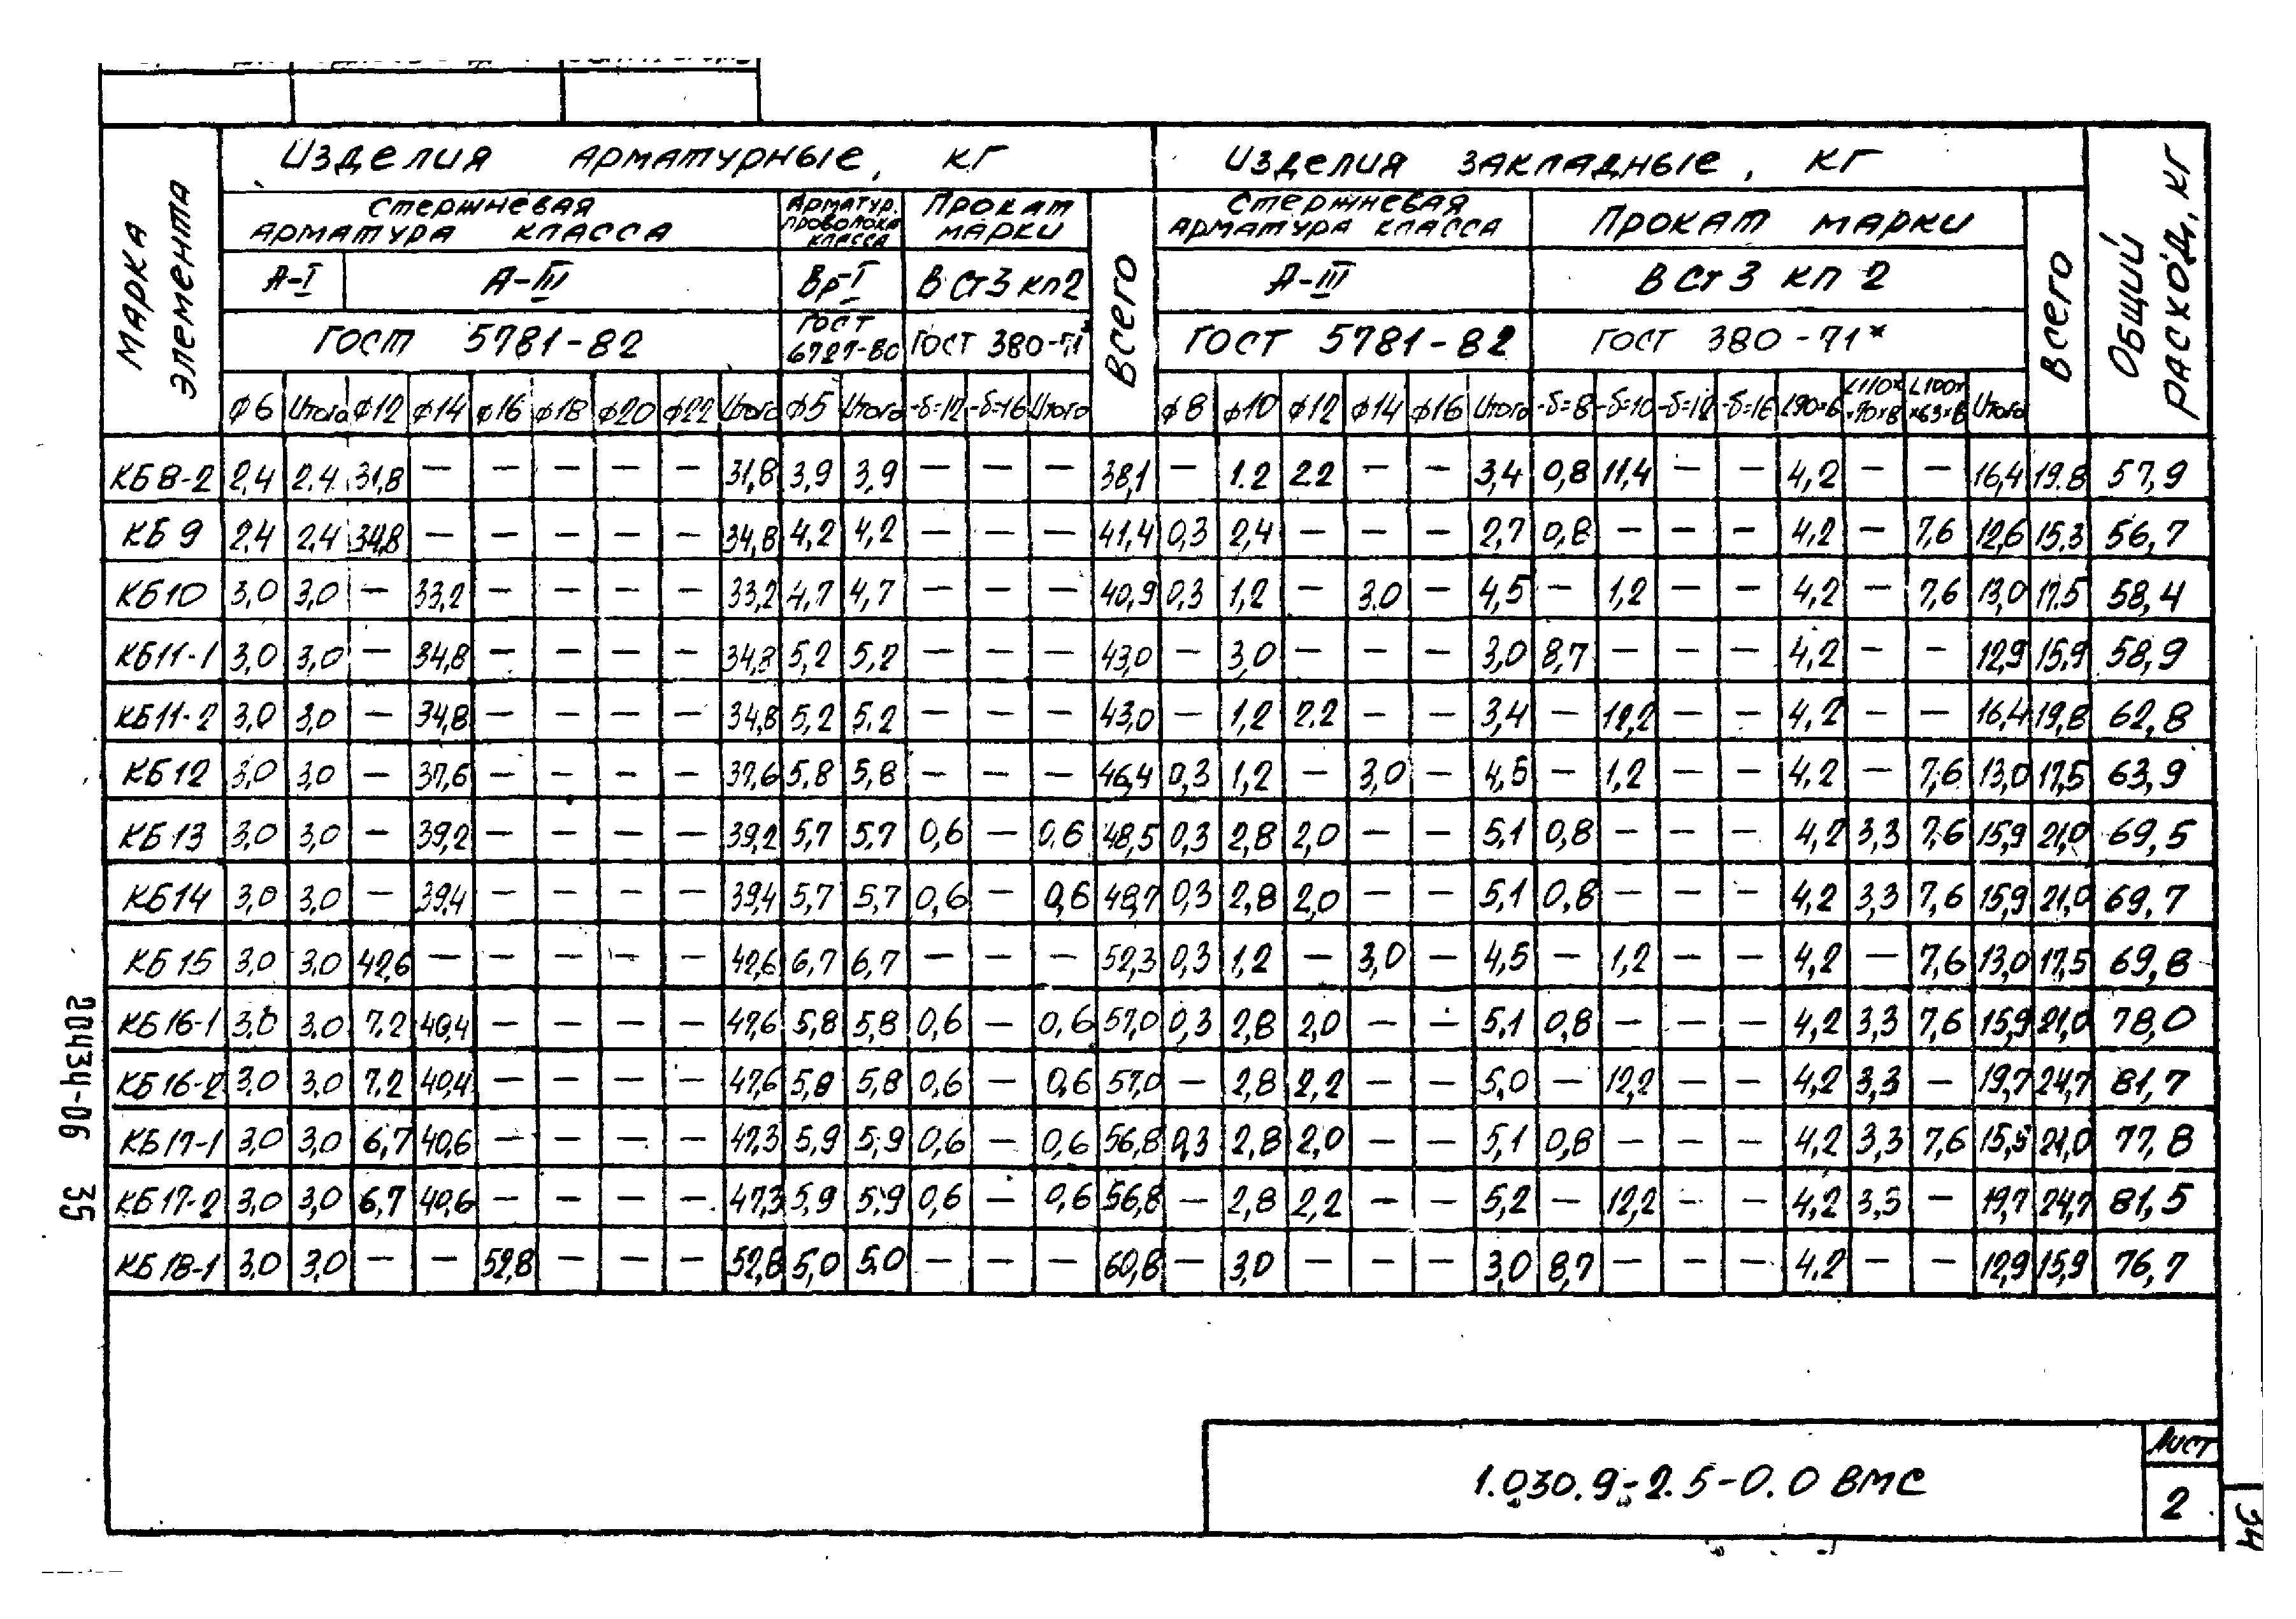 Изделия арматурные, кг
Изделия закладные, кг
Марка элемента
Стержневая арматура класса
Арматур. проволока класса
Прокат марки
Всего
Стержневая арматура класса
Прокат марки
Всего
Общий расход, кг
А-I А-III Вр-I ВСт3кп2 А-III ВСт3кп2
ГОСТ 5781-82 ГОСТ 6727-80 ГОСТ 380-71* ГОСТ 5781-82 ГОСТ 380-71*
ϕ6 Итого ϕ12 ϕ14 ϕ16 ϕ18 ϕ20 ϕ22 Итого ϕ5 Итого -δ=12 -δ=16 Итого ϕ8 ϕ10 ϕ12 ϕ14 ϕ16 Итого -δ=8 -δ=10 -δ=12 -δ=16 L90×6 L110××70×8 L100××63×8 Итого
КБ8-2 2,4 2,4 31,8 — — — — — 31,8 3,9 3,9 — — — 38,1 — 1.2 2.2 — — 3,4 0,8 11,4 — — 4,2 — — 16,4 19.8 57,9
КБ9 2,4 2,4 34,8 — — — — — 34,8 4,2 4,2 — — — 41,4 0,3 2,4 — — — 2,7 0,8 — — — 4,2 — 7,6 12,6 15,3 56,7
КБ10 3,0 3,0 — 33,2 — — — — 33,2 4,7 4,7 — — — 40,9 0,3 1,2 — 3.0 — 4,5 — 1,2 — — 4,2 — 7,6 13,0 17.5 58,4
КБ11-1 3,0 3,0 — 34,8 — — — — 34,8 5,2 5,2 — — — 43,0 — 3,0 — — — 3,0 8,7 — — — 4,2 — — 12,9 15,9 58,9
КБ11-2 3,0 3,0 — 34,8 — — — — 34,8 5,2 5,2 — — — 43,0 — 1,2 2.2 — — 3,4 — 12,2 — — 4,2 — — 16,4 19,8 62,8
КБ12 3,0 3,0 — 37,6 — — — — 37,6 5,8 5,8 — — — 46,4 0,3 1,2 — 3,0 — 4,5 — 1,2 — — 4,2 — 7,6 13,0 17,5 63,9
КБ13 3,0 3,0 — 39,2 — — — — 39,2 5,7 5,7 0,6 — 0,6 48,5 0,3 2,8 2,0 — — 5,1 0,8 — — — 4,2 3,3 7,6 15,9 21,0 69,5
КБ14 3,0 3,0 — 39,4 — — — — 39,4 5,7 5,7 0,6 — 0,6 48,7 0,3 2,8 2,0 — — 5,1 0,8 — — — 4,2 3,3 7,6 15,9 21,0 69,7
КБ15 3,0 3,0 42,6 — — — — — 42,6 6,7 6,7 — — — 52,3 0,3 1,2 — 3,0 — 4,5 — 1,2 — — 4,2 — 7,6 13,0 17,5 69,8
КБ16-1 3,0 3.0 7,2 40,4 — — — — 47,6 5,8 5,8 0,6 — 0,6 57,0 0,3 2,8 2,0 — — 5,1 0,8 — — — 4,2 3,3 7,6 15,9 21,0 78,0
КБ16-2 3,0 3,0 7,2 40,4 — — — — 47,6 5,8 5,8 0,6 — 0,6 57,0 — 2,8 2,2 — — 5,0 — 12,2 — — 4,2 3,3 — 19,7 24,7 81,7
КБ17-1 3,0 3,0 6,7 40,6 — — — — 47,3 5,9 5,9 0,6 — 0,6 56,8 0,3 2,8 2,0 — — 5,1 0,8 — — — 4,2 3,3 7,6 15,9 21,0 77,8
КБ17-2 3,0 3,0 6,7 40,6 — — — — 47,3 5,9 5,9 0,6 — 0,6 56,8 — 2,8 2,2 — — 5,2 — 12,2 — — 4,2 3,3 — 19,7 24,7 81,5
КБ18-1 3,0 3,0 — — 52,8 — — — 52,8 5,0 5,0 — — — 60,8 — 3,0 — — — 3,0 8,7 — — — 4,2 — — 12,9 15,9 76,7
20434-06 35
1.030.9-2.5-0.0 ВМС
Лист
2
34